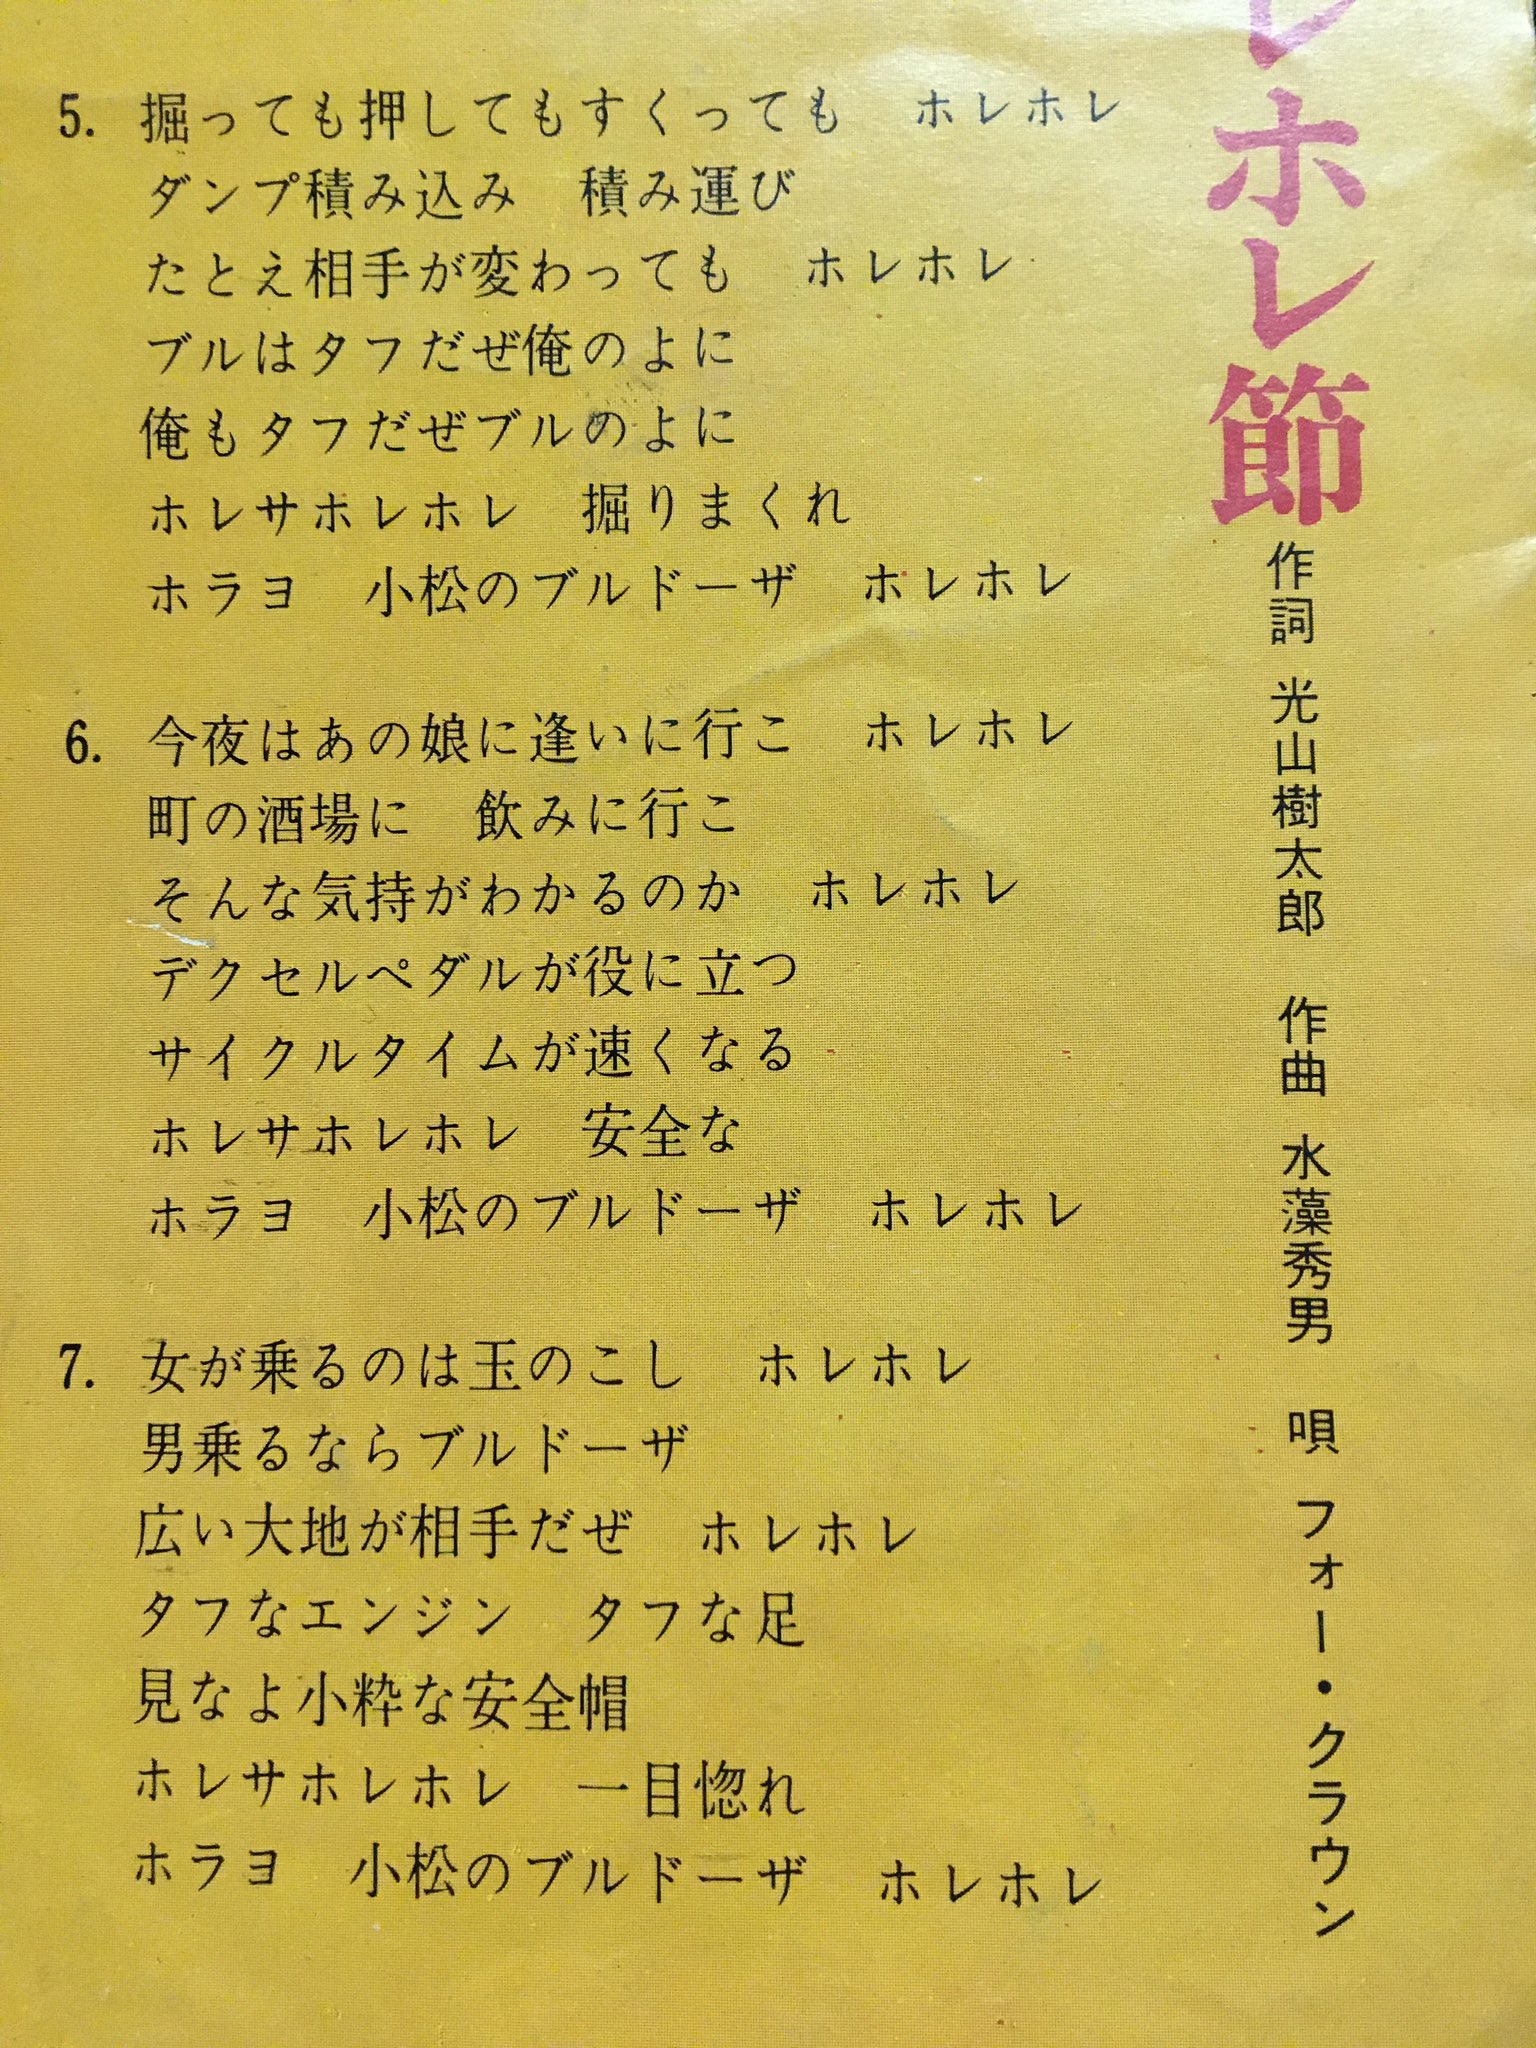 レホレ節
作詞 光山樹太郎 作曲 水藻秀男 唄 フォー・クラウン
5. 掘っても押してもすくっても ホレホレ
ダンプ積み込み 積み運び
たとえ相手が変わっても ホレホレ
ブルはタフだぜ俺のよに
俺もタフだぜブルのよに
ホレサホレホレ 掘りまくれ
ホラヨ 小松のブルドーザ ホレホレ
6. 今夜はあの娘に逢いに行こ ホレホレ
町の酒場に 飲みに行こ
そんな気持がわかるのか ホレホレ
デクセルペダルが役に立つ
サイクルタイムが速くなる
ホレサホレホレ 安全な
ホラヨ 小松のブルドーザ ホレホレ
7. 女が乗るのは玉のこし ホレホレ
男乗るならブルドーザ
広い大地が相手だぜ ホレホレ
タフなエンジン タフな足
見なよ小粋な安全帽
ホレサホレホレ 一目惚れ
ホラヨ 小松のブルドーザ ホレホレ